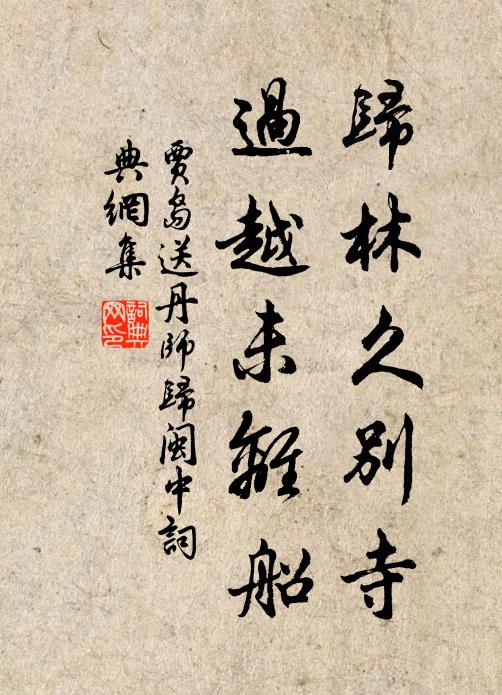 歸林久別寺
過越未離船
賈島送丹師歸閩中詞
典網集
詞典網印